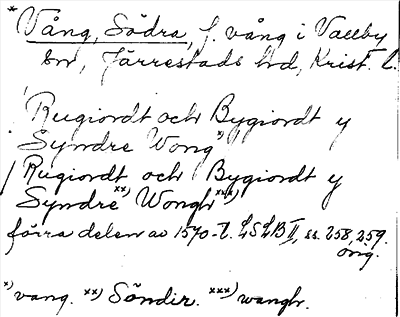 * Vång, Södra, f. vång i Vallby
sn, Järrestads hd, Krist. l.
Rugiordt och Bygiordt y
Syndre Wong x)
Rugiordt och Bygiordt y
Syndre xx) Wongh xxx)
förra delen av 1570-t. LSLB II, ss. 258, 259.
orig.
x) vang. xx) Söndir. xxx) wangh.